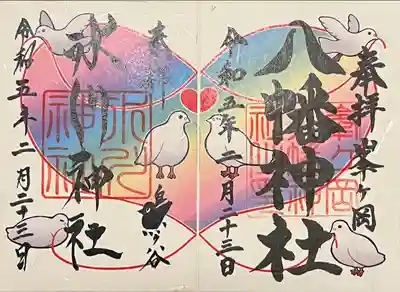 奉拝 峯ヶ岡
八幡神社
令和五年二月二十三日
奉拝 鳩ヶ谷
氷川神社
氷川神社
令和五年二月二十三日